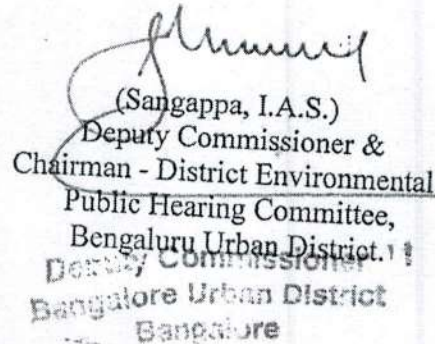 (Sangappa, I.A.S.)
Deputy Commissioner &
Chairman - District Environmental
Public Hearing Committee,
Bengaluru Urban District.
Deputy Commissioner
Bangalore Urban District
Bangalore